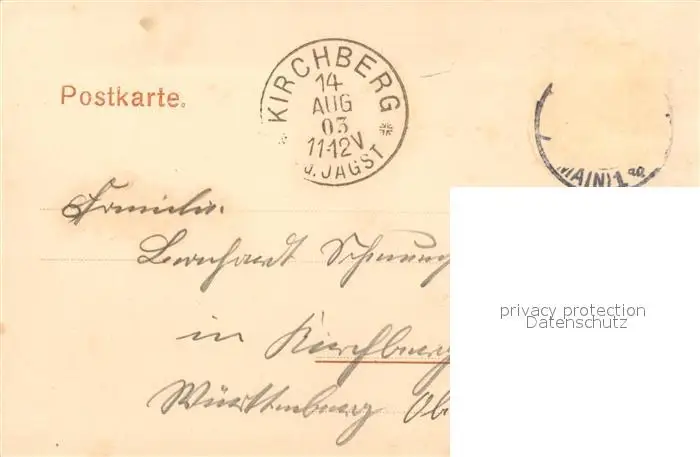 Postkarte.
KIRCHBERG
14
AUG
03
11-12V
a.d. JAGST
(MAIN) 1
Familie.
Bernhardt
in Kirchberg
Württemberg
privacy protection
Datenschutz